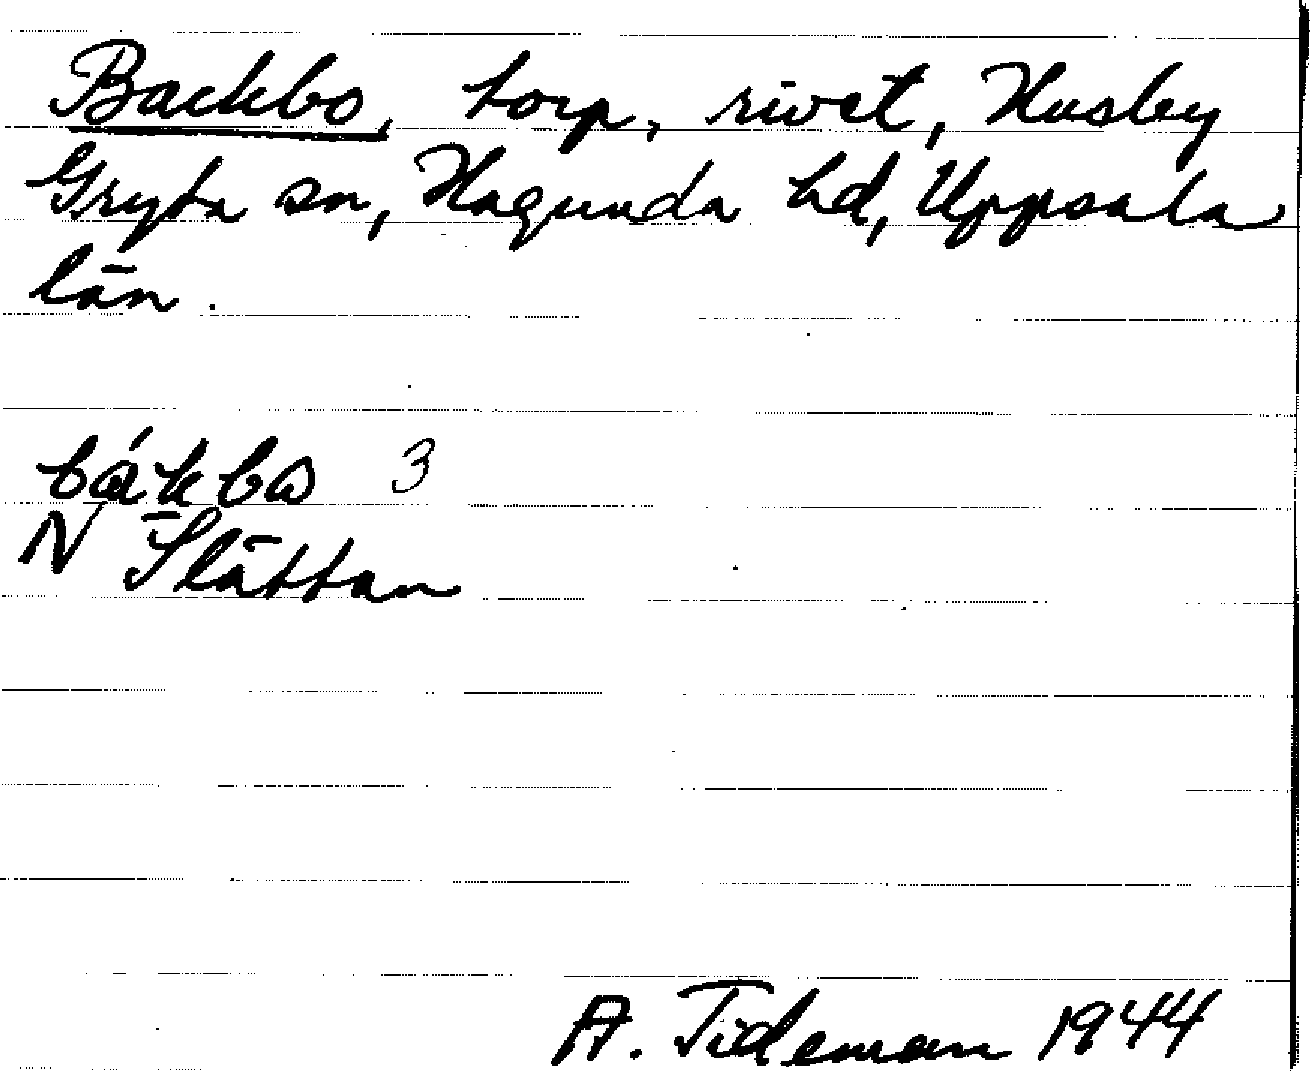 Backbo, torp, rivet, Husby
Gryta sn, Hagunda hd, Uppsala
län.
bákbω 3
N Slättan
A. Tideman 1944